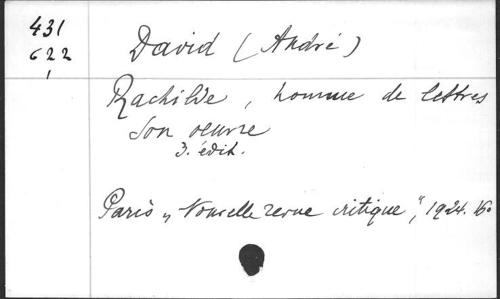 431
622
1
David (André)
Rachilde, homme de lettres
Son oeuvre
3. édit.
Paris „Nouvelle revue critique", 1924. 16o